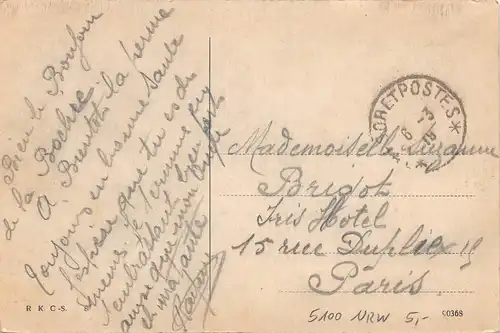 Bien le Bonjour
de la Bochie
A Bientôt la perme
Toujours en bonne santé
J'espère que tu es de
même. Je termine en
t'embrassant bien fort
ainsi que mon oncle
et ma tante
Mademoiselle Suzanne
Brigot
Iris Hotel
15 rue Dupleix 15
Paris
R. K. C.-S. 8
5100 NRW 5,-